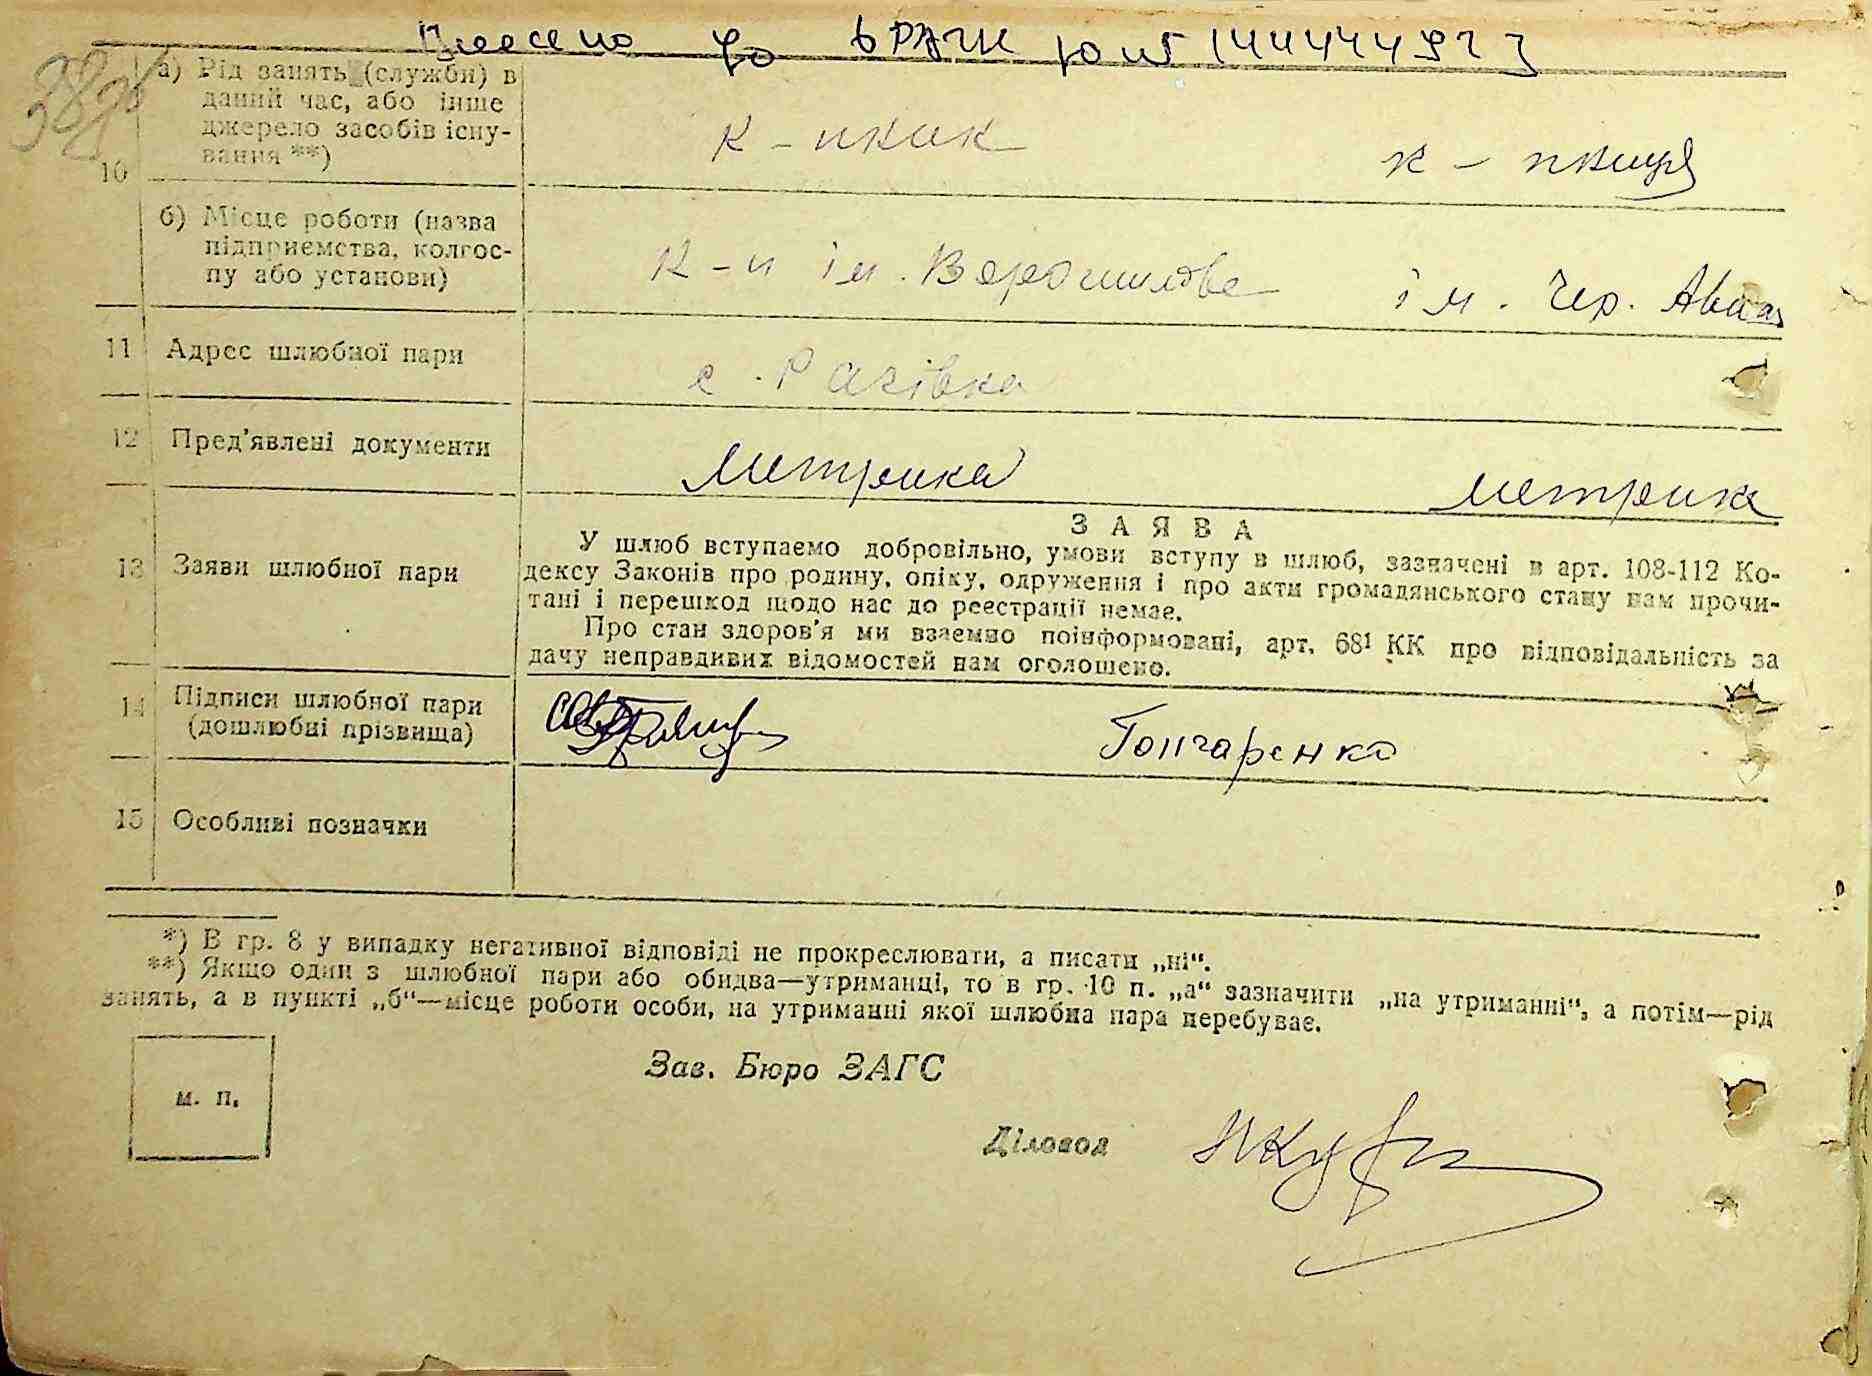 Внесено до
а) Рід занять (служби) в
даний час, або інше
джерело засобів існу-
вання **)
10
к-пник
к-пниця
б) Місце роботи (назва
підприємства, колгос-
пу або установи)
К-п ім. Ворошилова
ім. Чер. Авиа
11 Адрес шлюбної пари
с. Рачівка
12 Пред'явлені документи
метрика
метрика
13 Заяви шлюбної пари
ЗАЯВА
У шлюб вступаємо добровільно, умови вступу в шлюб, зазначені в арт. 108-112 Ко-
дексу Законів про родину, опіку, одруження і про акти громадянського стану нам прочи-
тані і перешкод щодо нас до реєстрації немає.
Про стан здоров'я ми взаємно поінформовані, арт. 68¹ КК про відповідальність за
дачу неправдивих відомостей нам оголошено.
14 Підписи шлюбної пари
(дошлюбні прізвища)
Гончаренко
15 Особливі позначки
*) В гр. 8 у випадку негативної відповіді не прокреслювати, а писати „ні“.
**) Якщо один з шлюбної пари або обидва—утриманці, то в гр. 10 п. „а“ зазначити „на утриманні“, а потім—рід
занять, а в пункті „б“—місце роботи особи, на утриманні якої шлюбна пара перебуває.
м. п.
Зав. Бюро ЗАГС
Діловод